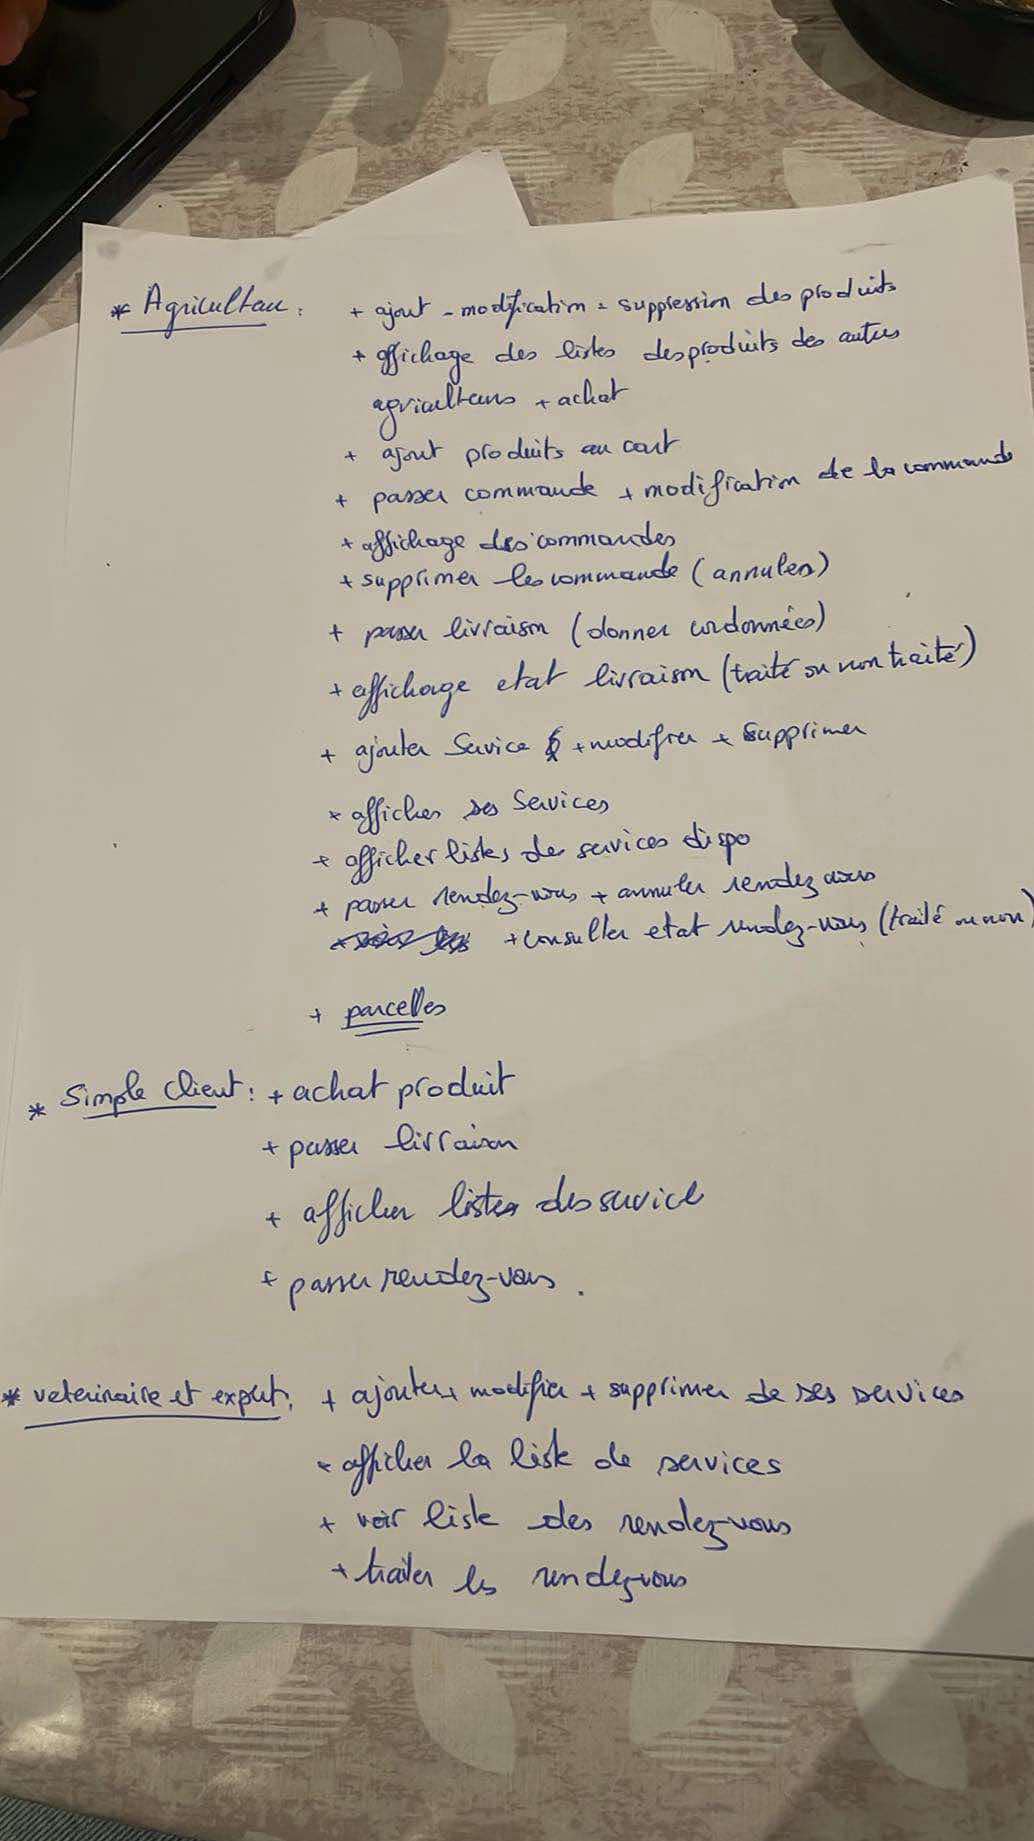 * Agriculteur : + ajout - modification - suppression des produits
+ affichage des listes des produits des autres
agriculteurs + achat
+ ajout produits au cart
+ passer commande + modification de la commande
+ affichage des commandes
+ supprimer les commande (annuler)
+ passer livraison (donner cordonnées)
+ affichage etat livraison (traité ou non traité)
+ ajouter Service + modifier + supprimer
+ afficher ses Services
+ afficher listes de services dispo
+ passer rendez-vous + annuler rendez vous
+ consulter etat rendez-vous (traité ou non)
+ parcelles
* Simple Client : + achat produit
+ passer livraison
+ afficher listes des service
+ passer rendez-vous.
* veterinaire et expert : + ajouter + modifier + supprimer de ses services
+ afficher la liste de services
+ voir liste des rendez-vous
+ traiter les rendez-vous